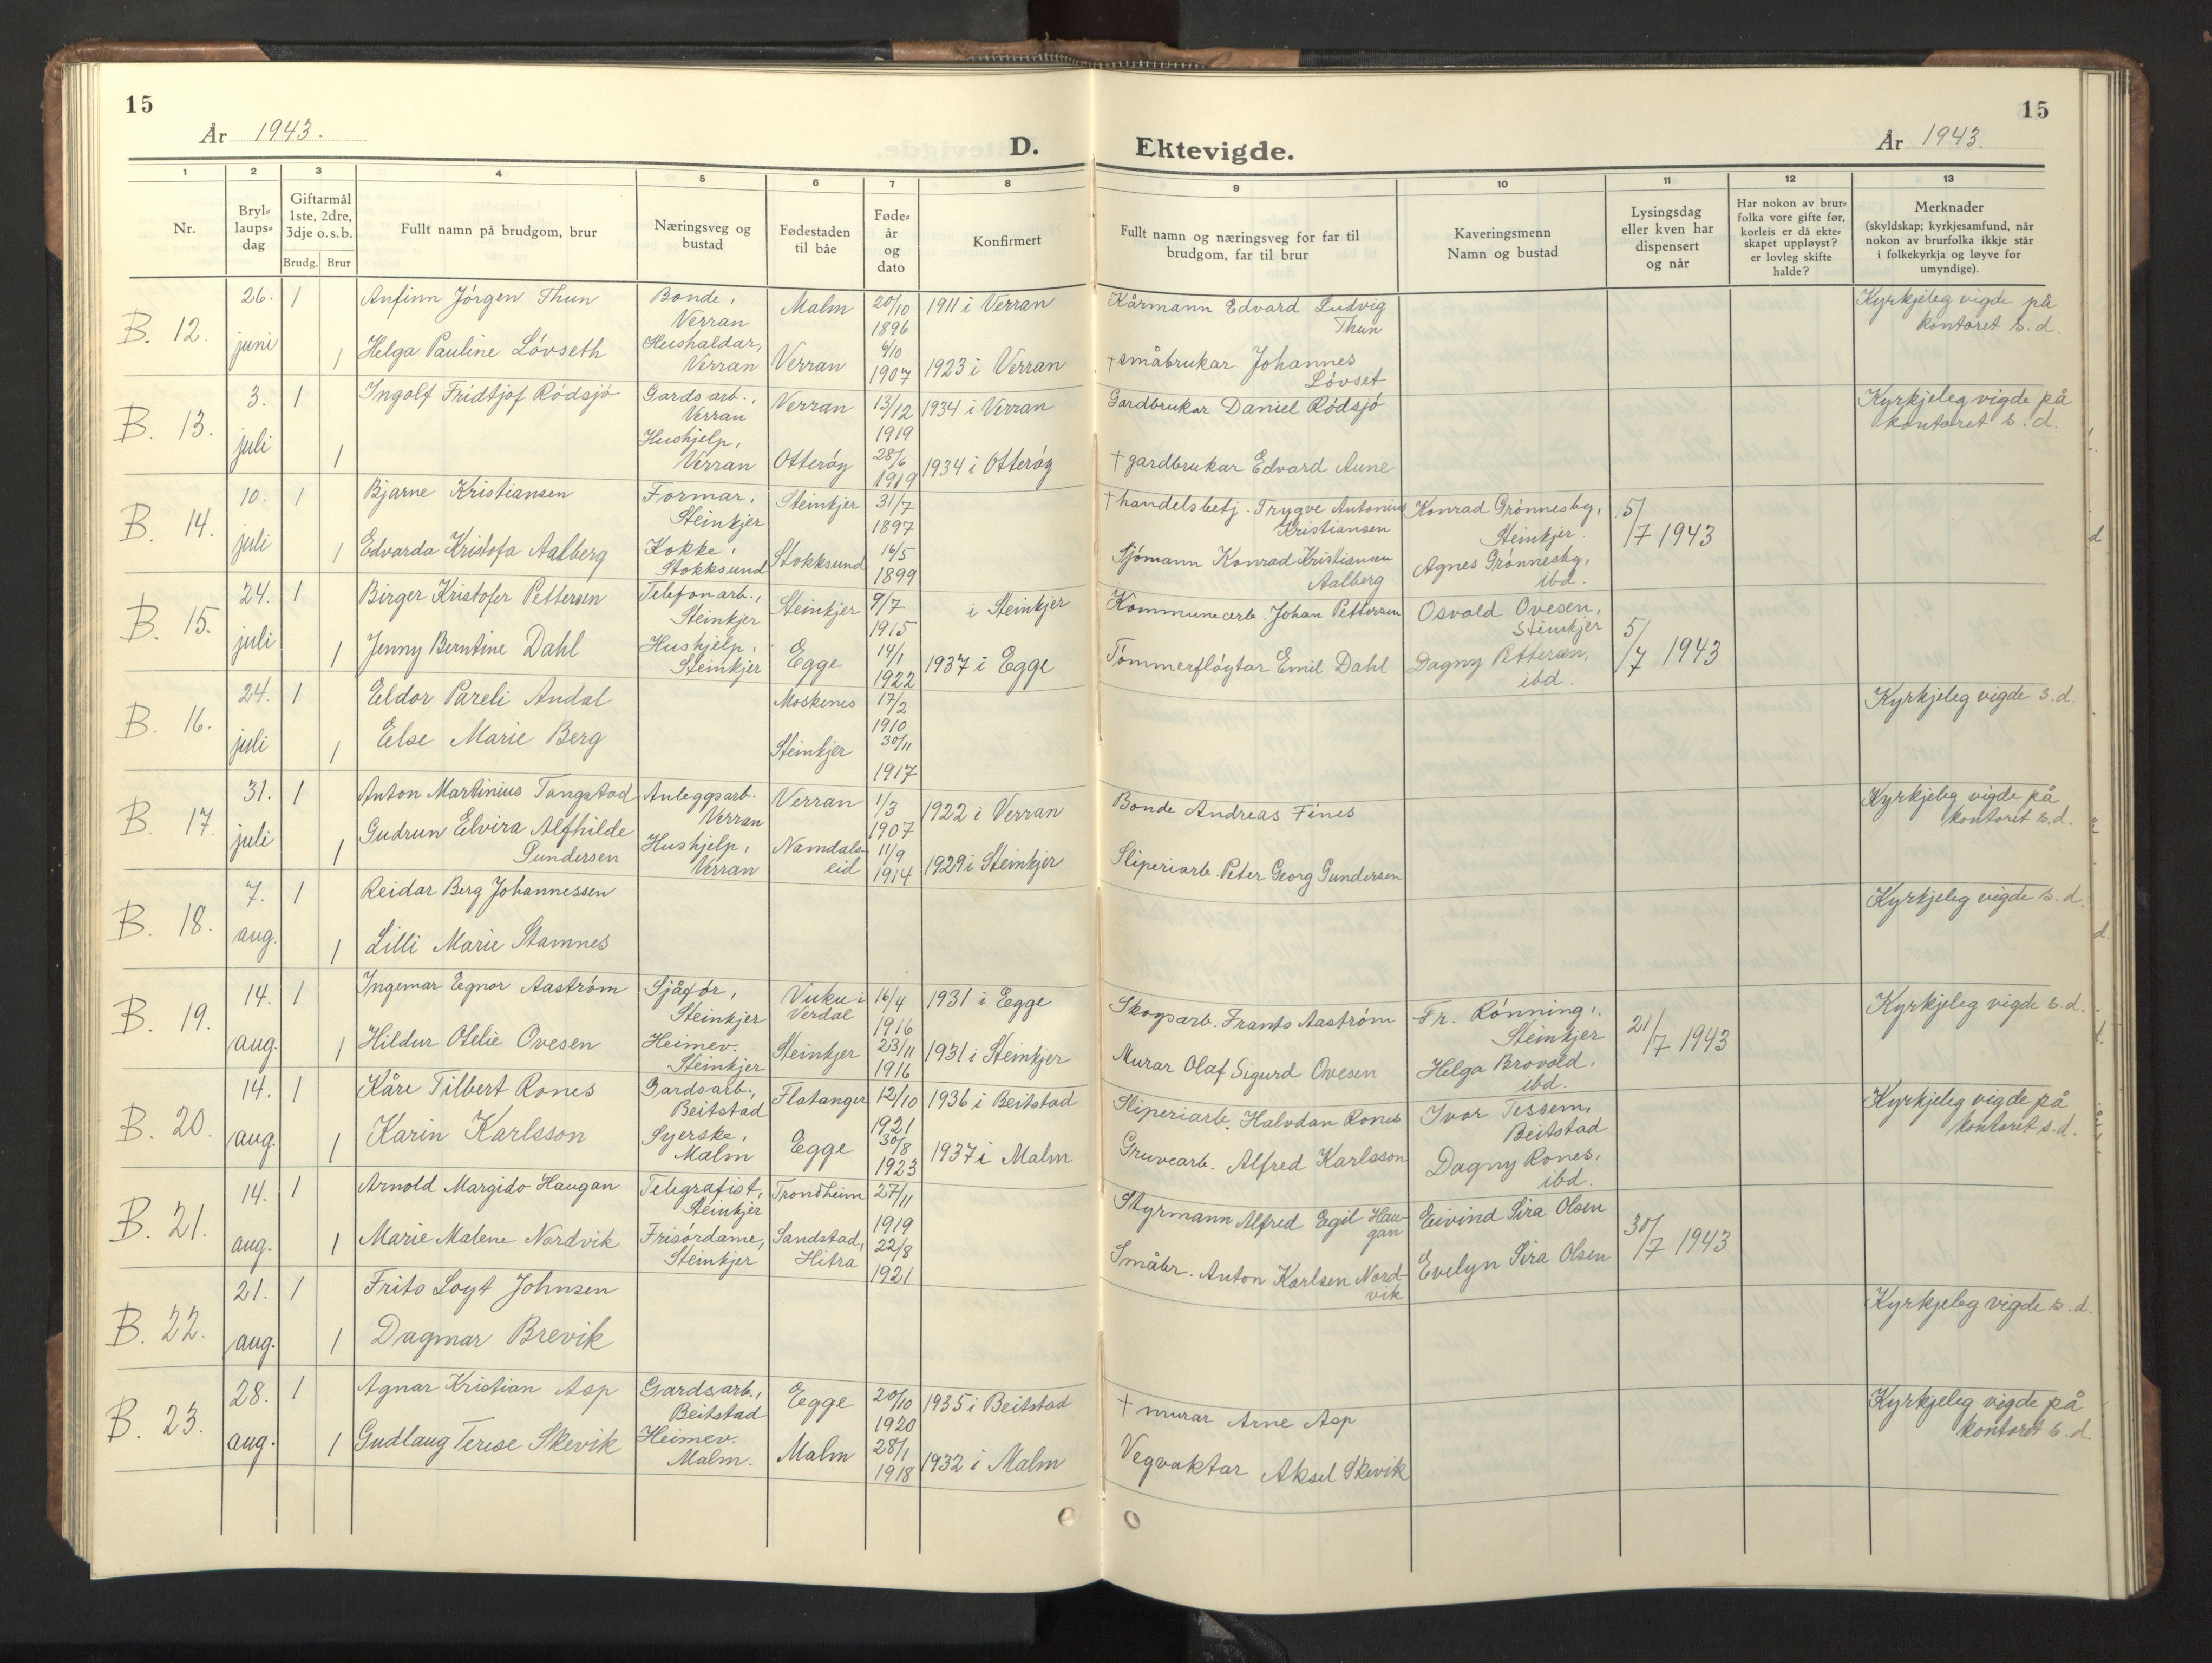 15
År 1943.
D.
1 2 3 4 5 6 7 8
Nr.
Bryl-
laups-
dag
Giftarmål
1ste, 2dre,
3dje o.s.b.
Brudg. Brur
Fullt namn på brudgom, brur
Næringsveg og
bustad
Fødestaden
til båe
Føde-
år
og
dato
Konfirmert
B. 12.
26.
juni
1
1
Anfinn Jörgen Thun
Helga Pauline Lövseth
Bonde,
Verran
Hushaldar,
Verran
Malm
Verran
20/10
1896
6/10
1907
1911 i Verran
1923 i Verran
B. 13.
3.
juli
1
1
Ingolf Fridtjof Rödsjö
Gardsarb.,
Verran
Hushjelp,
Verran
Verran
Otteröy
13/12
1919
28/6
1919
1934 i Verran
1934 i Otteröy
B. 14.
10.
juli
1
1
Bjarne Kristiansen
Edvarda Kristofa Aalberg
Formar,
Steinkjer
Kokke,
Stokksund
Steinkjer
Stokksund
31/7
1897
16/5
1899
B. 15.
24.
juli
1
1
Birger Kristofer Pettersen
Jenny Berntine Dahl
Telefonarb.,
Steinkjer
Hushjelp,
Steinkjer
Steinkjer
Egge
9/7
1915
14/1
1922
i Steinkjer
1937 i Egge
B. 16.
24.
juli
1
1
Eldor Pareli Andal
Else Marie Berg
Moskenes
Steinkjer
17/2
1910
30/11
1917
B. 17.
31.
juli
1
1
Anton Martinius Tangstad
Gudrun Elvira Alfhilde
Gundersen
Anleggsarb.
Verran
Hushjelp,
Verran
Verran
Namdals-
eid
1/3
1907
11/9
1914
1922 i Verran
1929 i Steinkjer
B. 18.
7.
aug.
1
1
Reidar Berg Johannessen
Lilli Marie Stamnes
B. 19.
14.
aug.
1
1
Ingemar Egnor Aaström
Hildur Otelie Ovesen
Sjåför,
Steinkjer
Heimev.
Steinkjer
Vuku i
Verdal
Steinkjer
16/4
1916
23/11
1916
1931 i Egge
1931 i Steinkjer
B. 20.
14.
aug.
1
1
Kåre Tilbert Rones
Karin Karlsson
Gardsarb.,
Beitstad
Syerske,
Malm
Flatanger
Egge
12/10
1921
30/8
1923
1936 i Beitstad
1937 i Malm
B. 21.
14.
aug.
1
1
Arnold Margido Haugan
Marie Malene Nordvik
Telegrafist,
Steinkjer
Frisördame,
Steinkjer
Trondheim
Sandstad,
Hitra
27/11
1919
22/8
1921
B. 22.
21.
aug.
1
1
Frits Loyt Johnsen
Dagmar Brevik
B. 23.
28.
aug.
1
1
Agnar Kristian Asp
Gudlaug Terese Skevik
Gardsarb.,
Beitstad
Heimev.
Malm.
Egge
Malm
20/10
1920
28/1
1918
1935 i Beitstad
1932 i Malm
15
Ektevigde.
År 1943.
9 10 11 12 13
Fullt namn og næringsveg for far til
brudgom, far til brur
Kaveringsmenn
Namn og bustad
Lysingsdag
eller kven har
dispensert
og når
Har nokon av brur-
folka vore gifte før,
korleis er då ekte-
skapet uppløyst?
er lovleg skifte
halde?
Merknader
(skyldskap; kyrkjesamfund, når
nokon av brurfolka ikkje står
i folkekyrkja og løyve for
umyndige).
Kårmann Edvard Ludvig
Thun
†småbrukar Johannes
Lövset
Kyrkjeleg vigde på
kontoret s.d.
Gardbrukar Daniel Rödsjö
†gardbrukar Edvard Aune
Kyrkjeleg vigde på
kontoret s.d.
†handelsbetj. Trygve Antonius
Kristiansen
Sjömann Konrad Kristiansen
Aalberg
Konrad Grönnesby,
Steinkjer.
Agnes Grönnesby,
ibd.
5/
/7 1943
Kommunearb. Johan Pettersen
Tömmerflöytar Emil Dahl
Osvald Ovesen,
Steinkjer
Dagny Pettersen,
ibd.
5/
/7 1943
Kyrkjeleg vigde s.d.
Bonde Andreas Fines
Sliperiarb. Peter Georg Gundersen
Kyrkjeleg vigde på
kontoret s.d.
Kyrkjeleg vigde s.d.
Skogsarb. Frants Aaström
Murar Olaf Sigurd Ovesen
Fr. Rönning,
Steinkjer
Helga Brovold,
ibd.
21/
/7 1943
Kyrkjeleg vigde s.d.
Sliperiarb. Halvdan Rones
Gruvearb. Alfred Karlsson
Ivar Tessem,
Beitstad
Dagny Rones,
ibd.
Kyrkjeleg vigde på
kontoret s.d.
Styrmann Alfred Egil Hau-
gan
Småbr. Anton Karlsen Nord-
vik
Eivind Sira Olsen
Evelyn Sira Olsen
30/
/7 1943
Kyrkjeleg vigde s.d.
† murar Arne Asp
Vegvaktar Aksel Skevik
Kyrkjeleg vigde på
kontoret s.d.